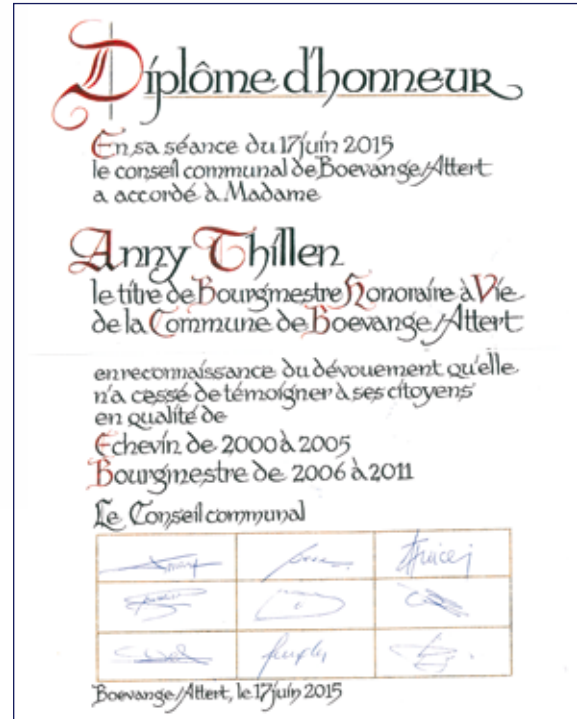 Diplôme d'honneur
En sa séance du 17 juin 2015
le conseil communal de Boevange/Attert
a accordé à Madame
Anny Thillen
le titre de Bourgmestre Honoraire à Vie
de la Commune de Boevange/Attert
en reconnaissance du dévouement qu'elle
n'a cessé de témoigner à ses citoyens
en qualité de
Echevin de 2000 à 2005
Bourgmestre de 2006 à 2011
Le Conseil communal
Boevange/Attert, le 17 juin 2015